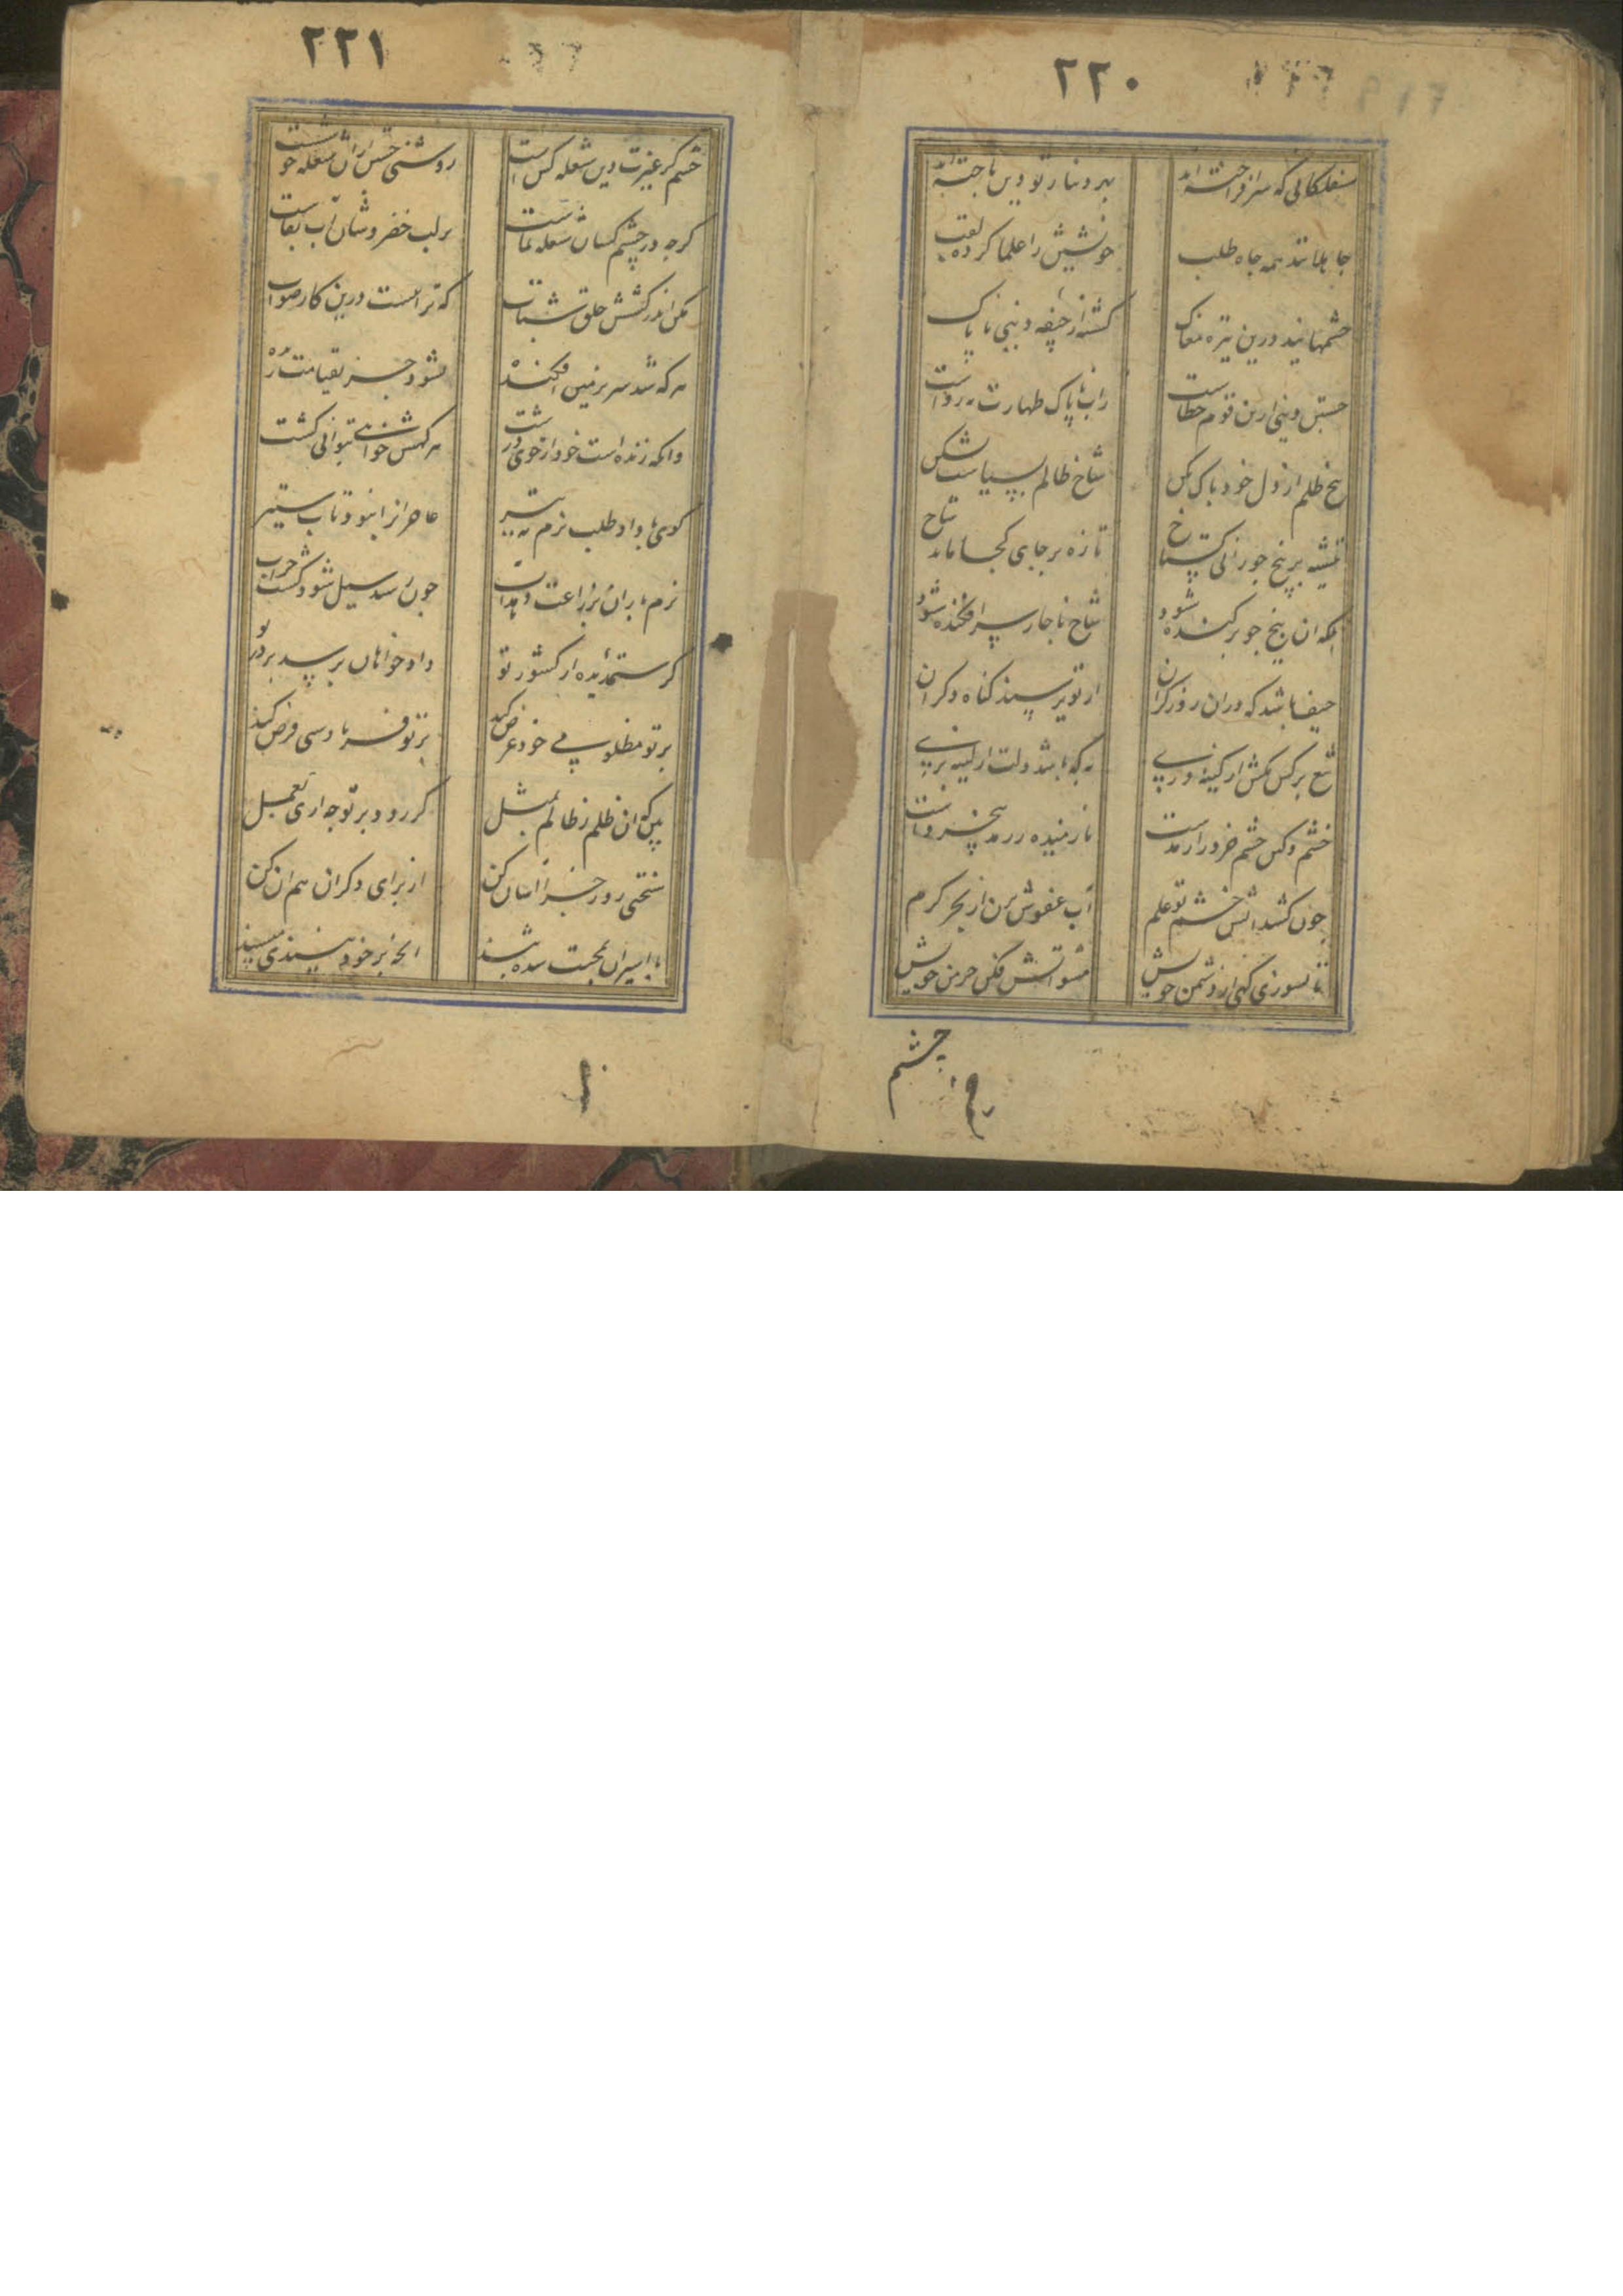 ۲۲۰
سفلکانی که سرافراخته اند
بهر دینار تو دین باخته اند
جاهلانند همه جاه طلب
خویش را علما کرده لقب
چشمهایند درین تیره مغاک
کشته از جیفه دنیی ناپاک
جستن دینی ازین قوم خطاست
زاب ناپاک طهارت نه رواست
بیخ ظلم از دل خود پاک بکن
شاخ ظالم بسیاست بشکن
تیشه بر بیخ جو زد کستاخ
تازه بر جای کجا ماند شاخ
بلکه آن بیخ جو برکنده شود
شاخ ناچار سرافکنده شود
حیف باشد که دران روز کران
از تو پرسند کناه دکران
تیغ بر کس مکش از کینه وری
نه که باشد دولت از کینه بری
خشم و کین خشم خرد را رمدست
بی خردست
چون کشد آتش خشم تو علم
آب عفوش بزن از بحر کرم
تا نسوزی کهی از دشمن خویش
مشو آتش فکن خرمن خویش
چشم
۲۲۱
خشم کز غیرت دین شعله کش است
روشنی جستن ازان شعله خوش است
کرچه در چشم کسان شعله نماست
بر لب خضروشان آب بقاست
مکن اندر کشش خلق شتاب
که ترا نیست درین کار صواب
هر که شد سر بزمین افکنده
نشود جز بقیامت زنده
وانکه زنده است خود از خوی درشت
هر کهش خواهی بتوانی کشت
کوی با داد طلب نرم نه تیز
عاجز انرا نبود تاب ستیز
نرم باران بزراعت دهد آب
چون رسد سیل شود کشت خراب
کر ستمدیده از کشور تو
دادخواهان برسد بر در تو
بر تو مظلومیی خود عرض کند
بر تو فریادرسی فرض کند
بین که آن ظلم ز ظالم بمثل
کر رود بر تو چه آری بعمل
سختی روز جزا آسان کن
از برای دکران هم آن کن
با اسیران محبت شده بند
آنچه بر خود نپسندی مپسند